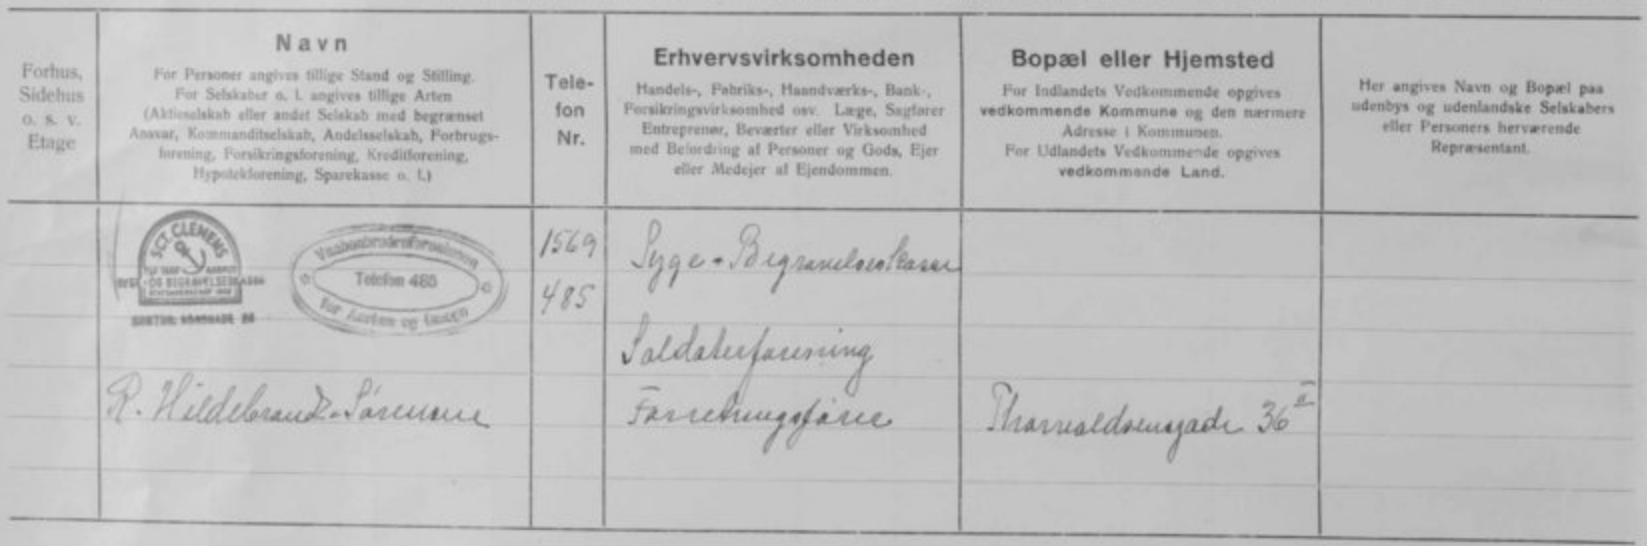 Forhus,
Sidehus
o. s. v.
Etage
Navn
For Personer angives tillige Stand og Stilling.
For Selskaber o. l. angives tillige Arten
(Aktieselskab eller andet Selskab med begrænset
Ansvar, Kommanditselskab, Andelsselskab, Forbrugs-
forening, Forsikringsforening, Kreditforening,
Hypotekforening, Sparekasse o. l.)
Tele-
fon
Nr.
Erhvervsvirksomheden
Handels-, Fabriks-, Haandværks-, Bank-,
Forsikringsvirksomhed osv. Læge, Sagfører
Entreprenør, Beværter eller Virksomhed
med Befordring af Personer og Gods, Ejer
eller Medejer af Ejendommen.
Bopæl eller Hjemsted
For Indlandets Vedkommende opgives
vedkommende Kommune og den nærmere
Adresse i Kommunen.
For Udlandets Vedkommende opgives
vedkommende Land.
Her angives Navn og Bopæl paa
udenbys og udenlandske Selskabers
eller Personers herværende
Repræsentant.
SCT. CLEMENS
OG BEGRAVELSESKASSE
KONTOR:
Vaabenbrødreforeningen
Telefon 485
for Aarhus og Omegn
1569
Syge- Begravelseskasse
485
Soldaterforening
R. Hildebrandt-Sørensen
Forretningsfører
Thorvaldsensgade 36 II